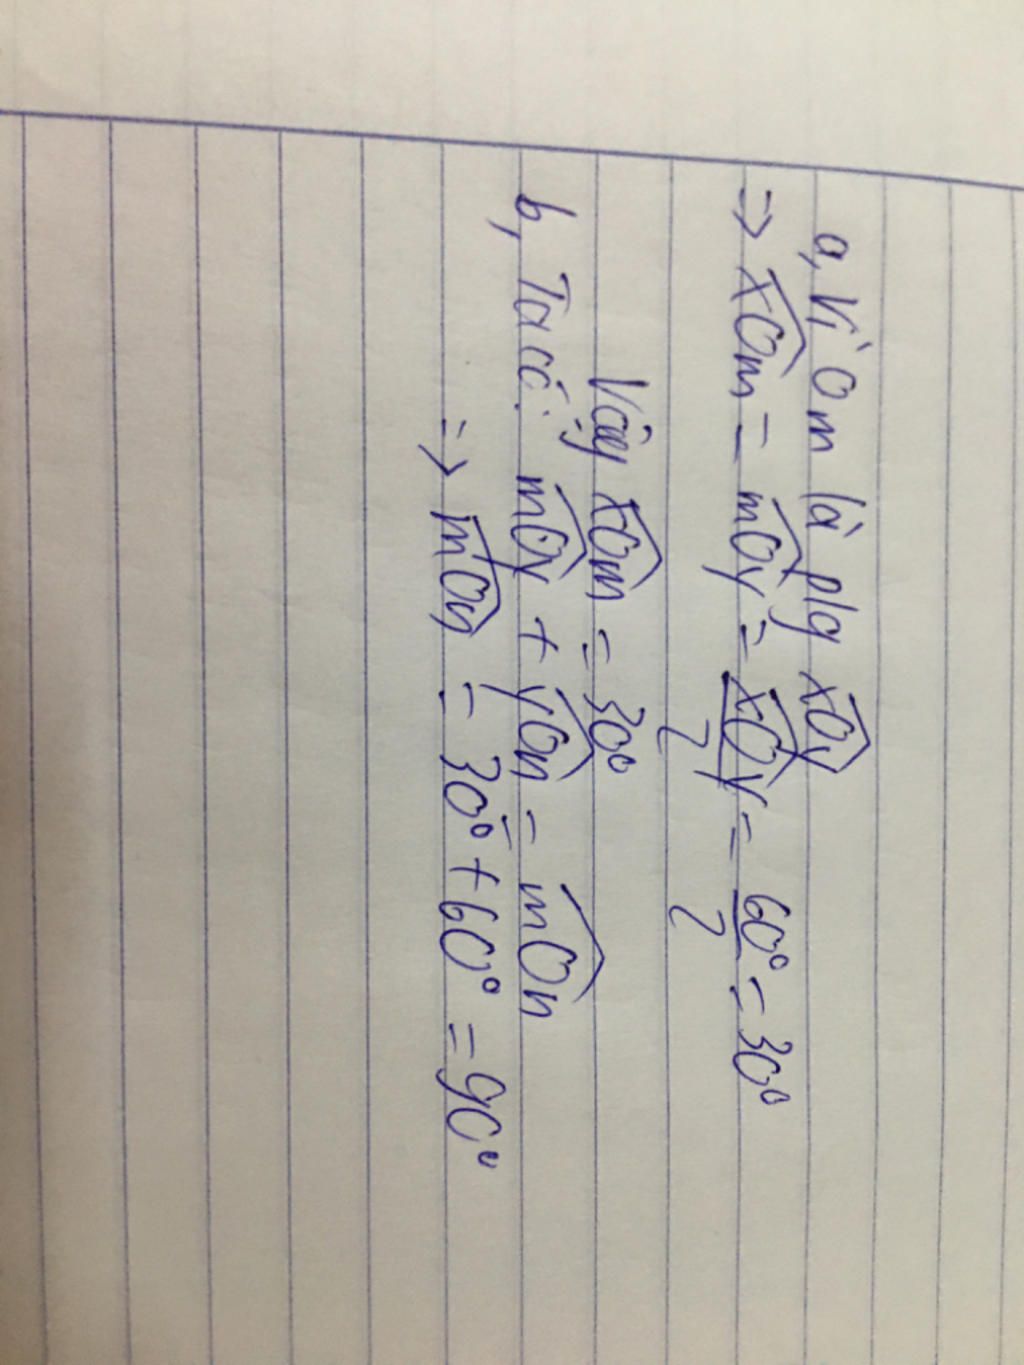 a, Vì Om là plg xOy
=> xOm = mOy = xOy/2 = 60°/2 = 30°
Vậy xOm = 30°
b, Ta có: mOy + yOn = mOn
=> mOn = 30° + 60° = 90°